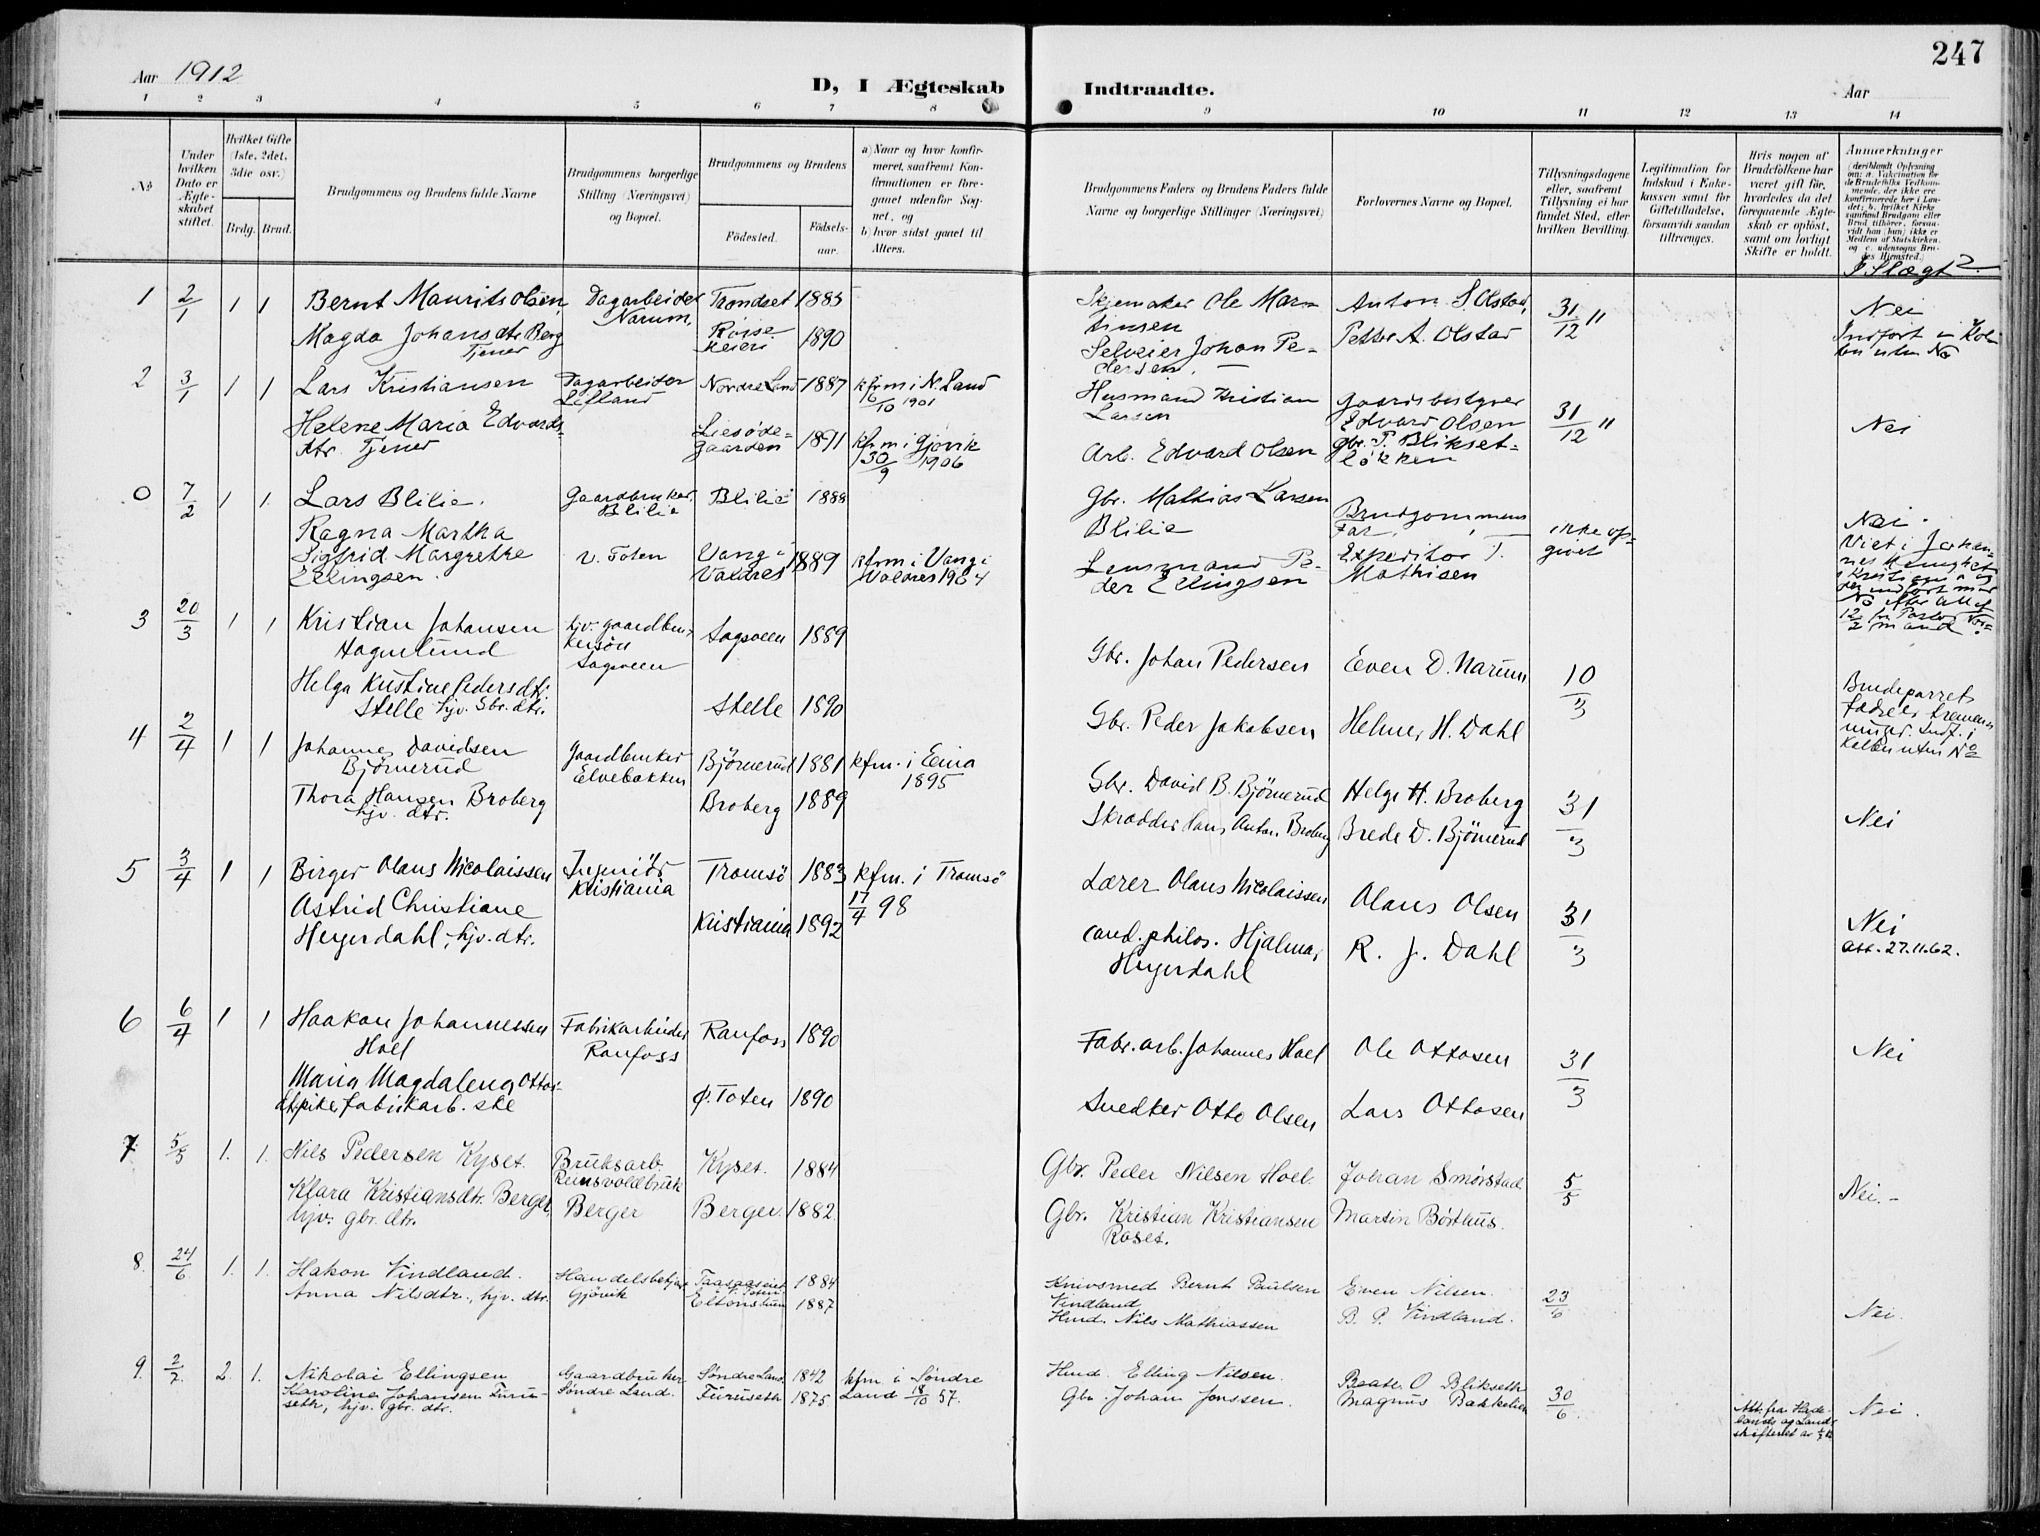 247
Aar 1912
D, I Ægteskab Indtraadte.
Aar
1 2 3 4 5 6 7 8 9 10 11 12 13 14
No
Under hvilken Dato er Ægteskabet stiftet.
Hvilket Gifte (1ste, 2det, 3die osv.)
Brdg. Brud.
Brudgommens og Brudens fulde Navne
Brudgommens borgerlige Stilling (Næringsvei) og Bopæl.
Brudgommens og Brudens
Fødested. Fødselsaar.
a) Naar og hvor konfirmeret, saafremt Konfirmationen er foregaaet udenfor Sognet, og
b) hvor sidst gaaet til Alters.
Brudgommens Faders og Brudens Faders fulde Navne og borgerlige Stillinger (Næringsvei)
Forlovernes Navne og Bopæl.
Tillysningsdagene eller, saafremt Tillysning ei har fundet Sted, efter hvilken Bevilling.
Legitimation for Indskud i Enkekassen samt for Giftetilladelse, forsaavidt saadan tiltrænges.
Hvis nogen af Brudefolkene har været gift før, hvorledes da det foregaaende Ægteskab er opløst, samt om lovligt Skifte er holdt.
Anmærkninger
(deriblandt Oplysning om: a. Vakcination for de Brudefolks Vedkommende, der ikke ere konfirmerede her i Landet; b. hvilket Kirkesamfund Brudgom eller Brud tilhører, forsaavidt han (hun) ikke er Medlem af Statskirken, og c. udensogns Brudes Hjemsted.)
I Slægt?
1 2/1 1 1 Bernt Maurits Olsen Dagarbeider Narum, Trondset 1885
Skjemaker Ole Martinsen Anton S. Olstad, 31/12 " Nei
Magda Johansdtr. Berg Tjener 1890
Selveier Johan Pedersen. Petter A. Olstad
2 3/1 1 1 Lars Kristiansen Dagarbeider Nordre Land 1887 kfrm i N. Land 6/10 1901
Husmand Kristian Larsen gaardsbestyrer Edvard Olsen 31/12 " Nei
Helene Maria Edvardsdtr. Tjener 1891 kfrm i Gjøvik 30/9 1906
Arb. Edvard Olsen gbr. P. Bliksetløkken
0 7/2 1 1. Lars Blilie. Gaardbruker Blilie Blilie 1888
Gbr. Mathias Larsen Blilie Brudgommens Far, ikke opgivet Nei.
Ragna Martha Sigfrid Margrethe Ellingsen. V. Toten Vang i Valdres 1889 kfrm i Vang i Valdres 1904
Lensmand Peder Ellingsen Expeditør T. Mathisen
3 20/3 1 1 Kristian Johansen Hagenlund Sagveen 1889
Gbr. Johan Pedersen Even D. Narum 10/3
Helga Kristine Pedersdtr. Stelle hjv. Gbr. dtr. Stelle 1890
Gbr. Peder Jakobsen Helmer H. Dahl
4 2/4 1 1 Johannes Davidsen Björnerud Gaardbruker Elvebakken Björnerud 1881 kfm. i Eina 1895
Gbr. David B. Björnerud Helge H. Broberg 31/3 Nei
Thora Hansen Broberg hjv. dtr. Broberg 1889
Skrædder Hans Anton Broberg Brede D. Björnerud
5 3/4 1 1 Birger Olaus Nicolaissen Ingeniør Kristiania Tromsö 1883 kfm. i Tromsö 17/4 98
Lærer Olaus Nicolaissen Olaus Olsen 31/3 Nei
Astrid Christiane Heyerdahl, hjv. dtr. Kristiania 1892
cand. philos. Hjalmar Heyerdahl R. J. Dahl Att. 27.11.62.
6 6/4 1 1 Haakon Johannessen Hoel Fabrikarbeider Raufoss Raufoss 1890
Fabr. arb. Johannes Hoel Ole Ottosen 31/3 Nei
Maria Magdalena Ø. Toten 1890
Snedker Otto Olsen Lars Ottosen
7 5/5 1. 1. Nils Pedersen Kyset. Bruksarb. Reinsvoldbruk Kyset. 1884
Gbr. Peder Nilsen Hoel. Johan Smørstad 5/5 Nei.-
Klara Kristiansdtr. Berger, hjv. gbr. dtr. Berger Berger. 1882.
Gbr. Kristian Kristiansen Roset. Martin Børthus.
8. 24/6 1. 1. Hakon Vindland. Handelsbetjent Gjøvik 1884
Knivsmed Bernt Paulsen Vindland Even Nilsen. 23/6 Nei.
Anna Nilsdtr., hjv. dtr. 1887
Hmd. Nils Mathiassen B. P. Vindland.
9. 2/7 2. 1. Nikolai Ellingsen Gaardbruker Søndre Land. Søndre Land 1842 kfm. i Søndre Land 18/10 57.
Hmd. Elling Nilsen. Beate O Blikseth 30/6 Nei.
Karoline Johansen Furuseth, hjv. gbr. dtr. Furuseth 1875
Gbr. Johan Jonssen. Magnus Bakkelien
Att. fra Hadelands og Lands skifteret av